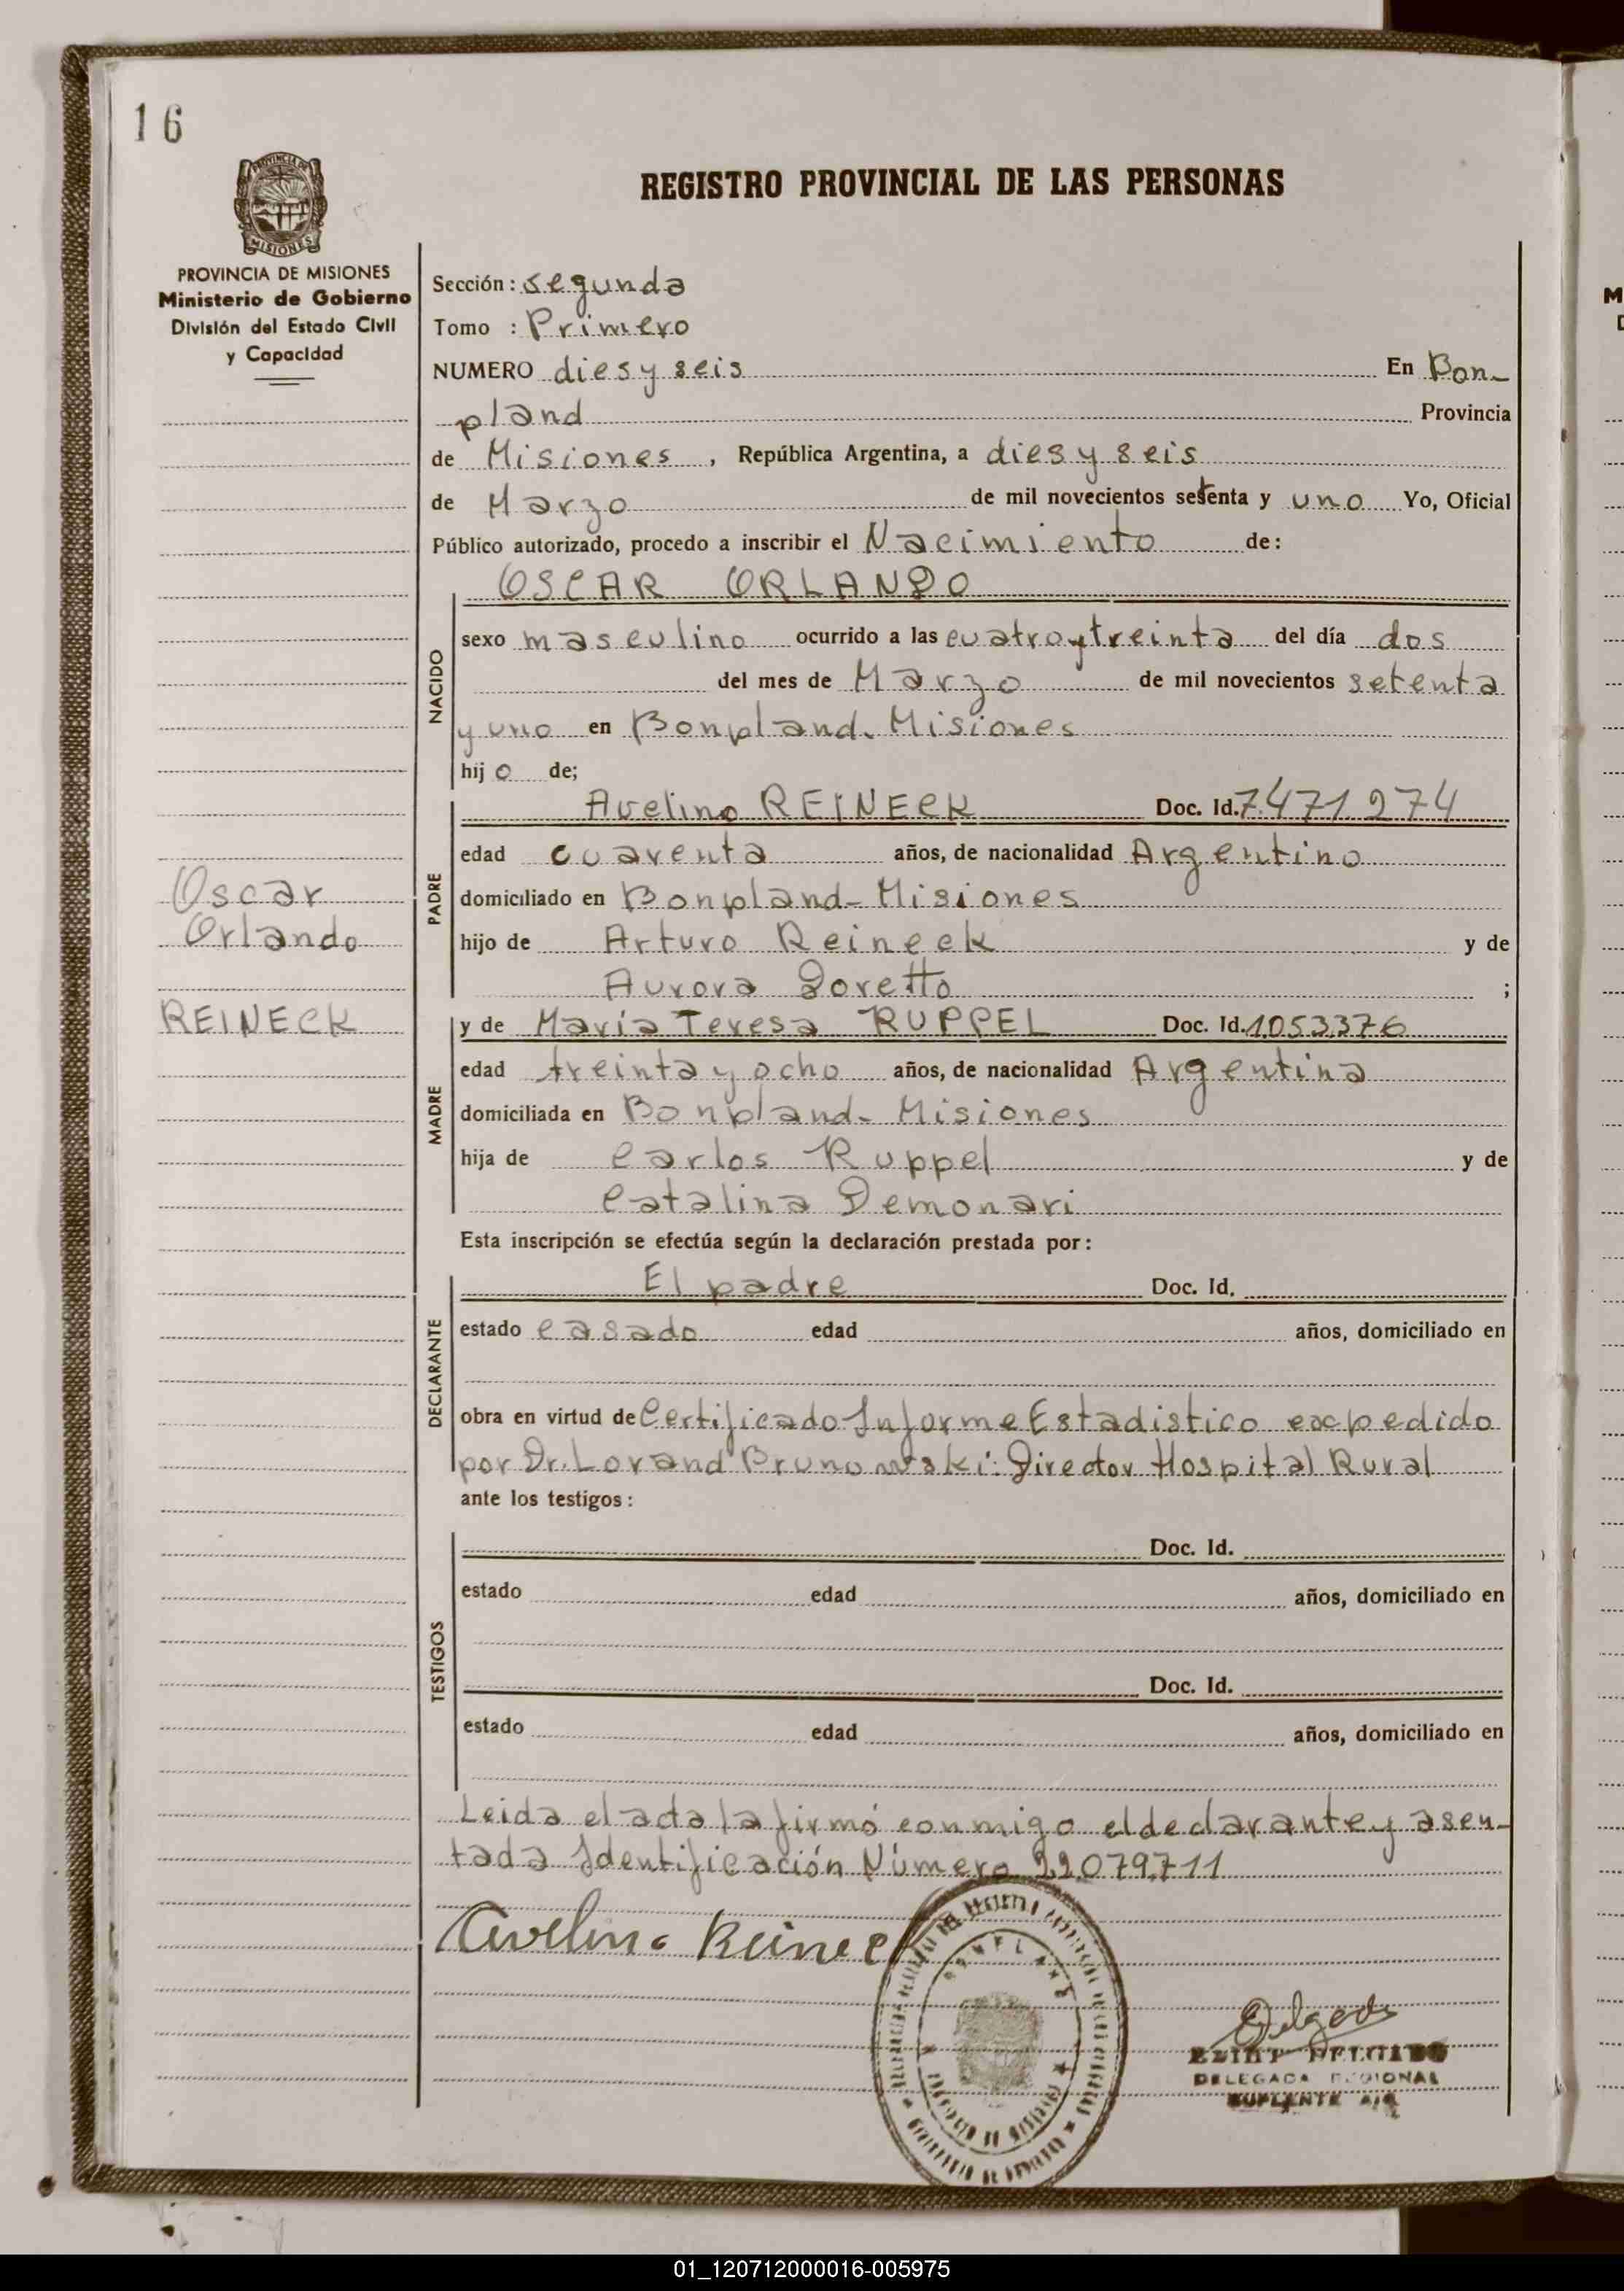 16
REGISTRO PROVINCIAL DE LAS PERSONAS
MISIONES
PROVINCIA DE MISIONES
Ministerio de Gobierno
División del Estado Civil
y Capacidad
Sección: segunda
Tomo : Primero
NUMERO diesy seis En Bon-
pland Provincia
de Misiones, República Argentina, a diesy seis
de Marzo de mil novecientos setenta y uno Yo, Oficial
Público autorizado, procedo a inscribir el Nacimiento de:
OSCAR ORLANDO
NACIDO
sexo masculino ocurrido a las cuatro y treinta del día dos
del mes de Marzo de mil novecientos setenta
y uno en Bonpland. Misiones
hijo de;
PADRE
Avelino REINECK Doc. Id. 7.471.274
edad cuarenta años, de nacionalidad Argentino
domiciliado en Bonpland- Misiones
hijo de Arturo Reineck y de
Aurora Doretto ;
Oscar
Orlando
REINECK
MADRE
y de María Teresa RUPPEL Doc. Id. 1.053.376
edad treinta y ocho años, de nacionalidad Argentina
domiciliada en Bonpland- Misiones
hija de Carlos Ruppel y de
Catalina Demonari
Esta inscripción se efectúa según la declaración prestada por:
DECLARANTE
El padre Doc. Id.
estado casado edad años, domiciliado en
obra en virtud de Certificado Informe Estadistico expedido
por Dr. Lorand Brunowski: Director Hospital Rural
ante los testigos:
TESTIGOS
Doc. Id.
estado edad años, domiciliado en
Doc. Id.
estado edad años, domiciliado en
Leida el acta la firmó conmigo el declarante y asen-
tada Identificación Número 22.079.711
Avelino Reineck
BONPLAND
PROVINCIA DE MISIONES
Delgado
DELGADO
DELEGADA REGIONAL
SUPLENTE A/C
01_120712000016-005975